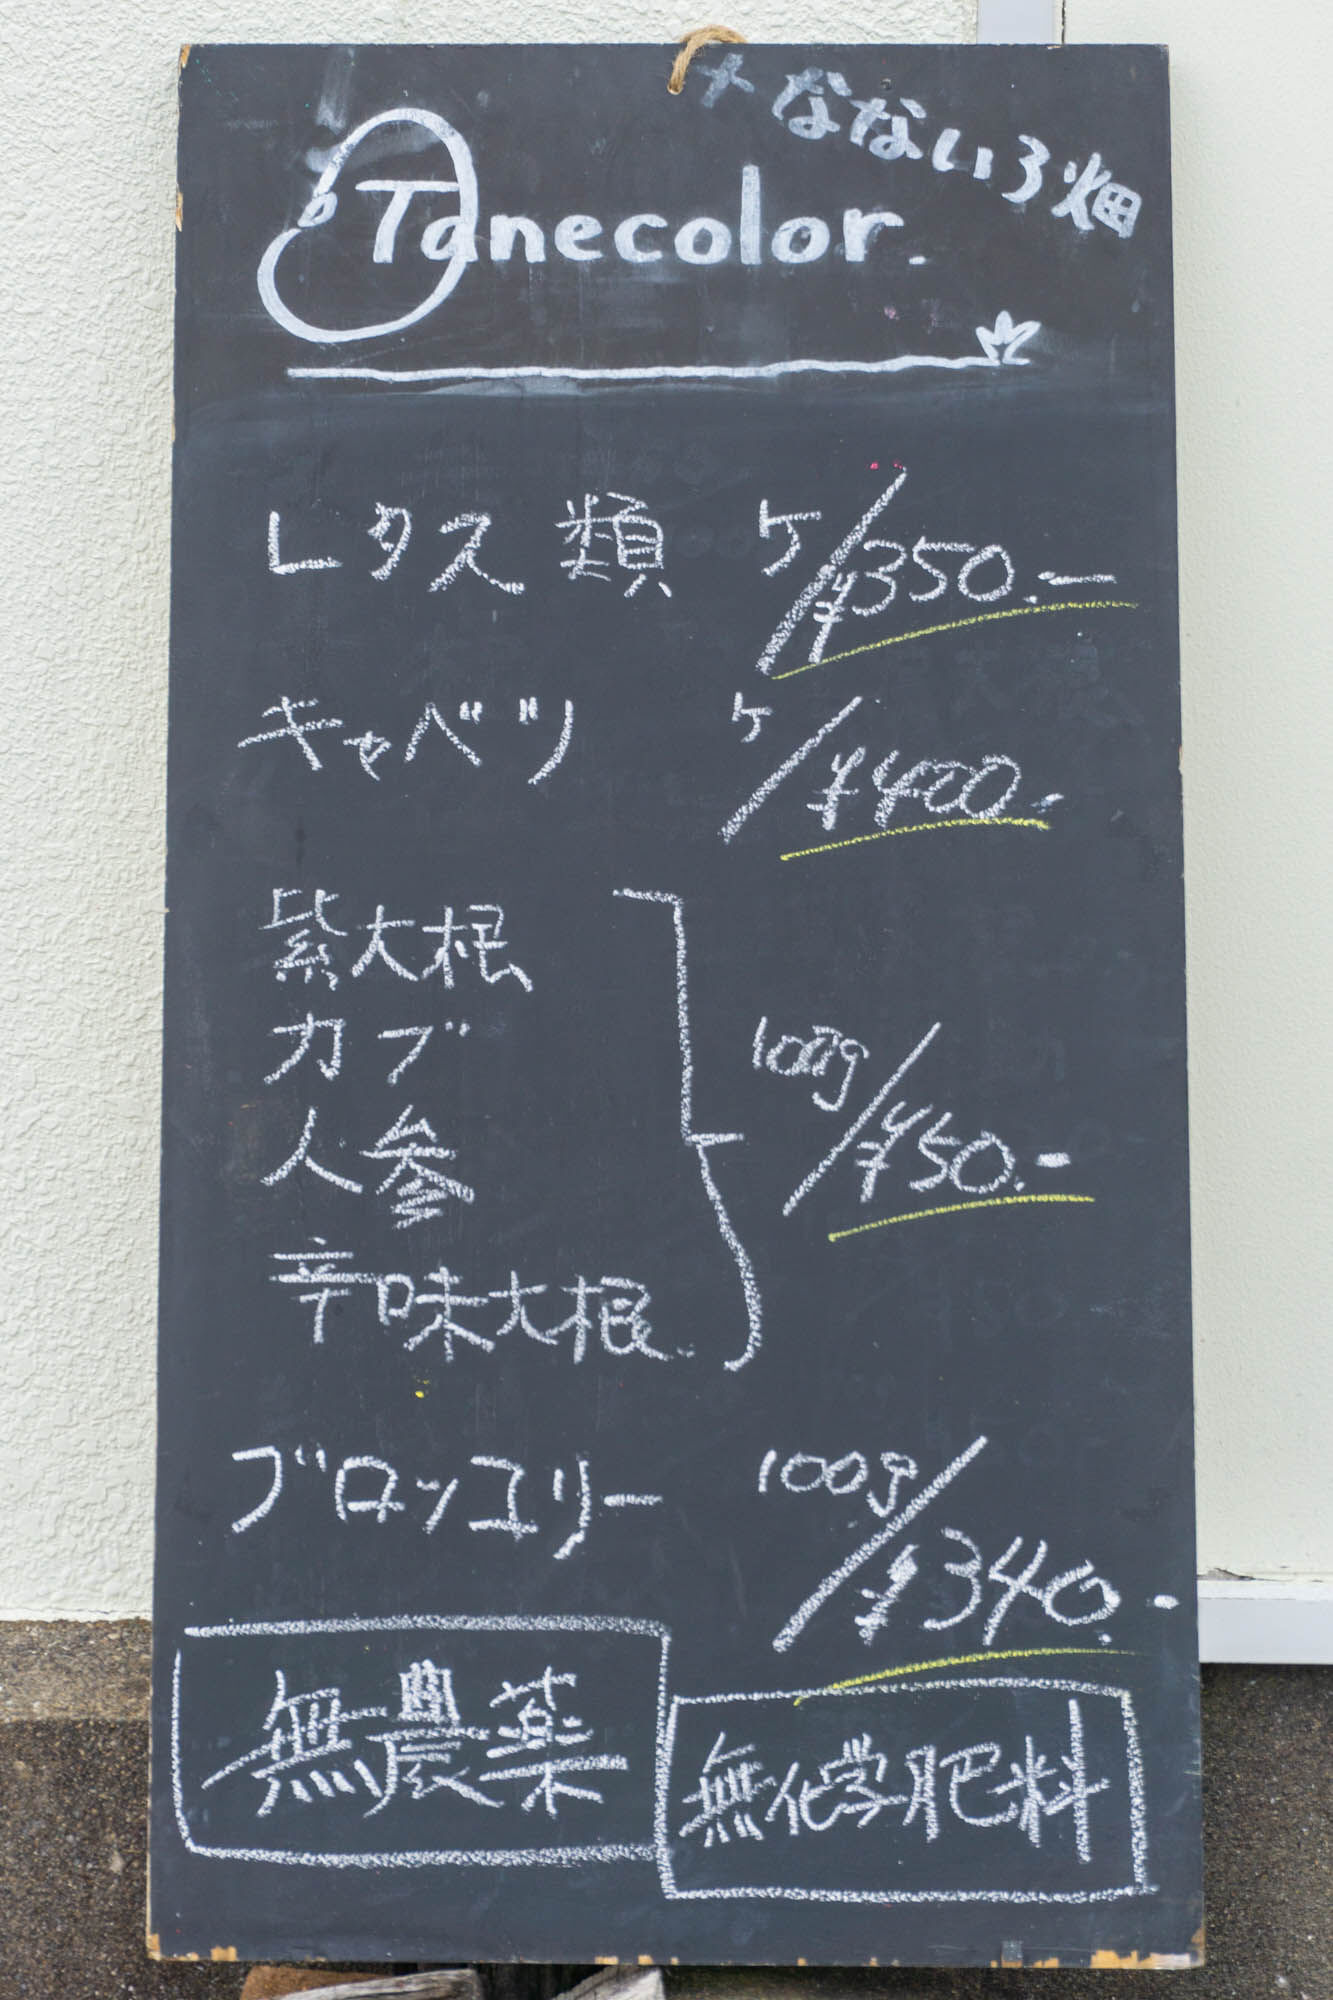 +なないろ畑
Tanecolor.
レタス類 ケ/¥350.-
キャベツ ケ/¥400.-
紫大根
カブ
人参
辛味大根
100g/¥50.-
ブロッコリー 100g/¥340.-
無農薬
無化学肥料